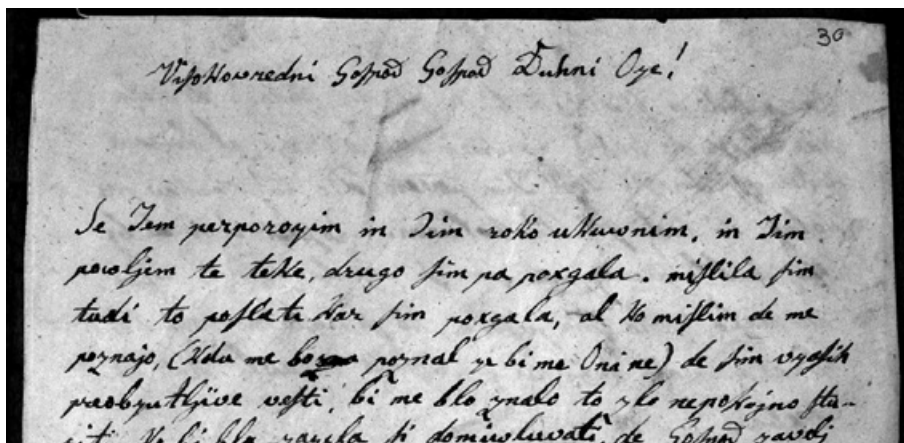 30
Visokovredni Gospod Gospod Duhni Oze!
Se Jem perporozim in Jim roko ukuvnim, in Jim
powljem te teke, drugo sim pa pozgala. mislila sim
tudi to poslati kar sim pozgala, al ko mislim de me
poznajo, (kdu me poznal ze bi me Oni ne) de sim vzasih
preobzutljive vesti, bi me blo znalo to zlo nepokojno stu-
de Gospod zavolj